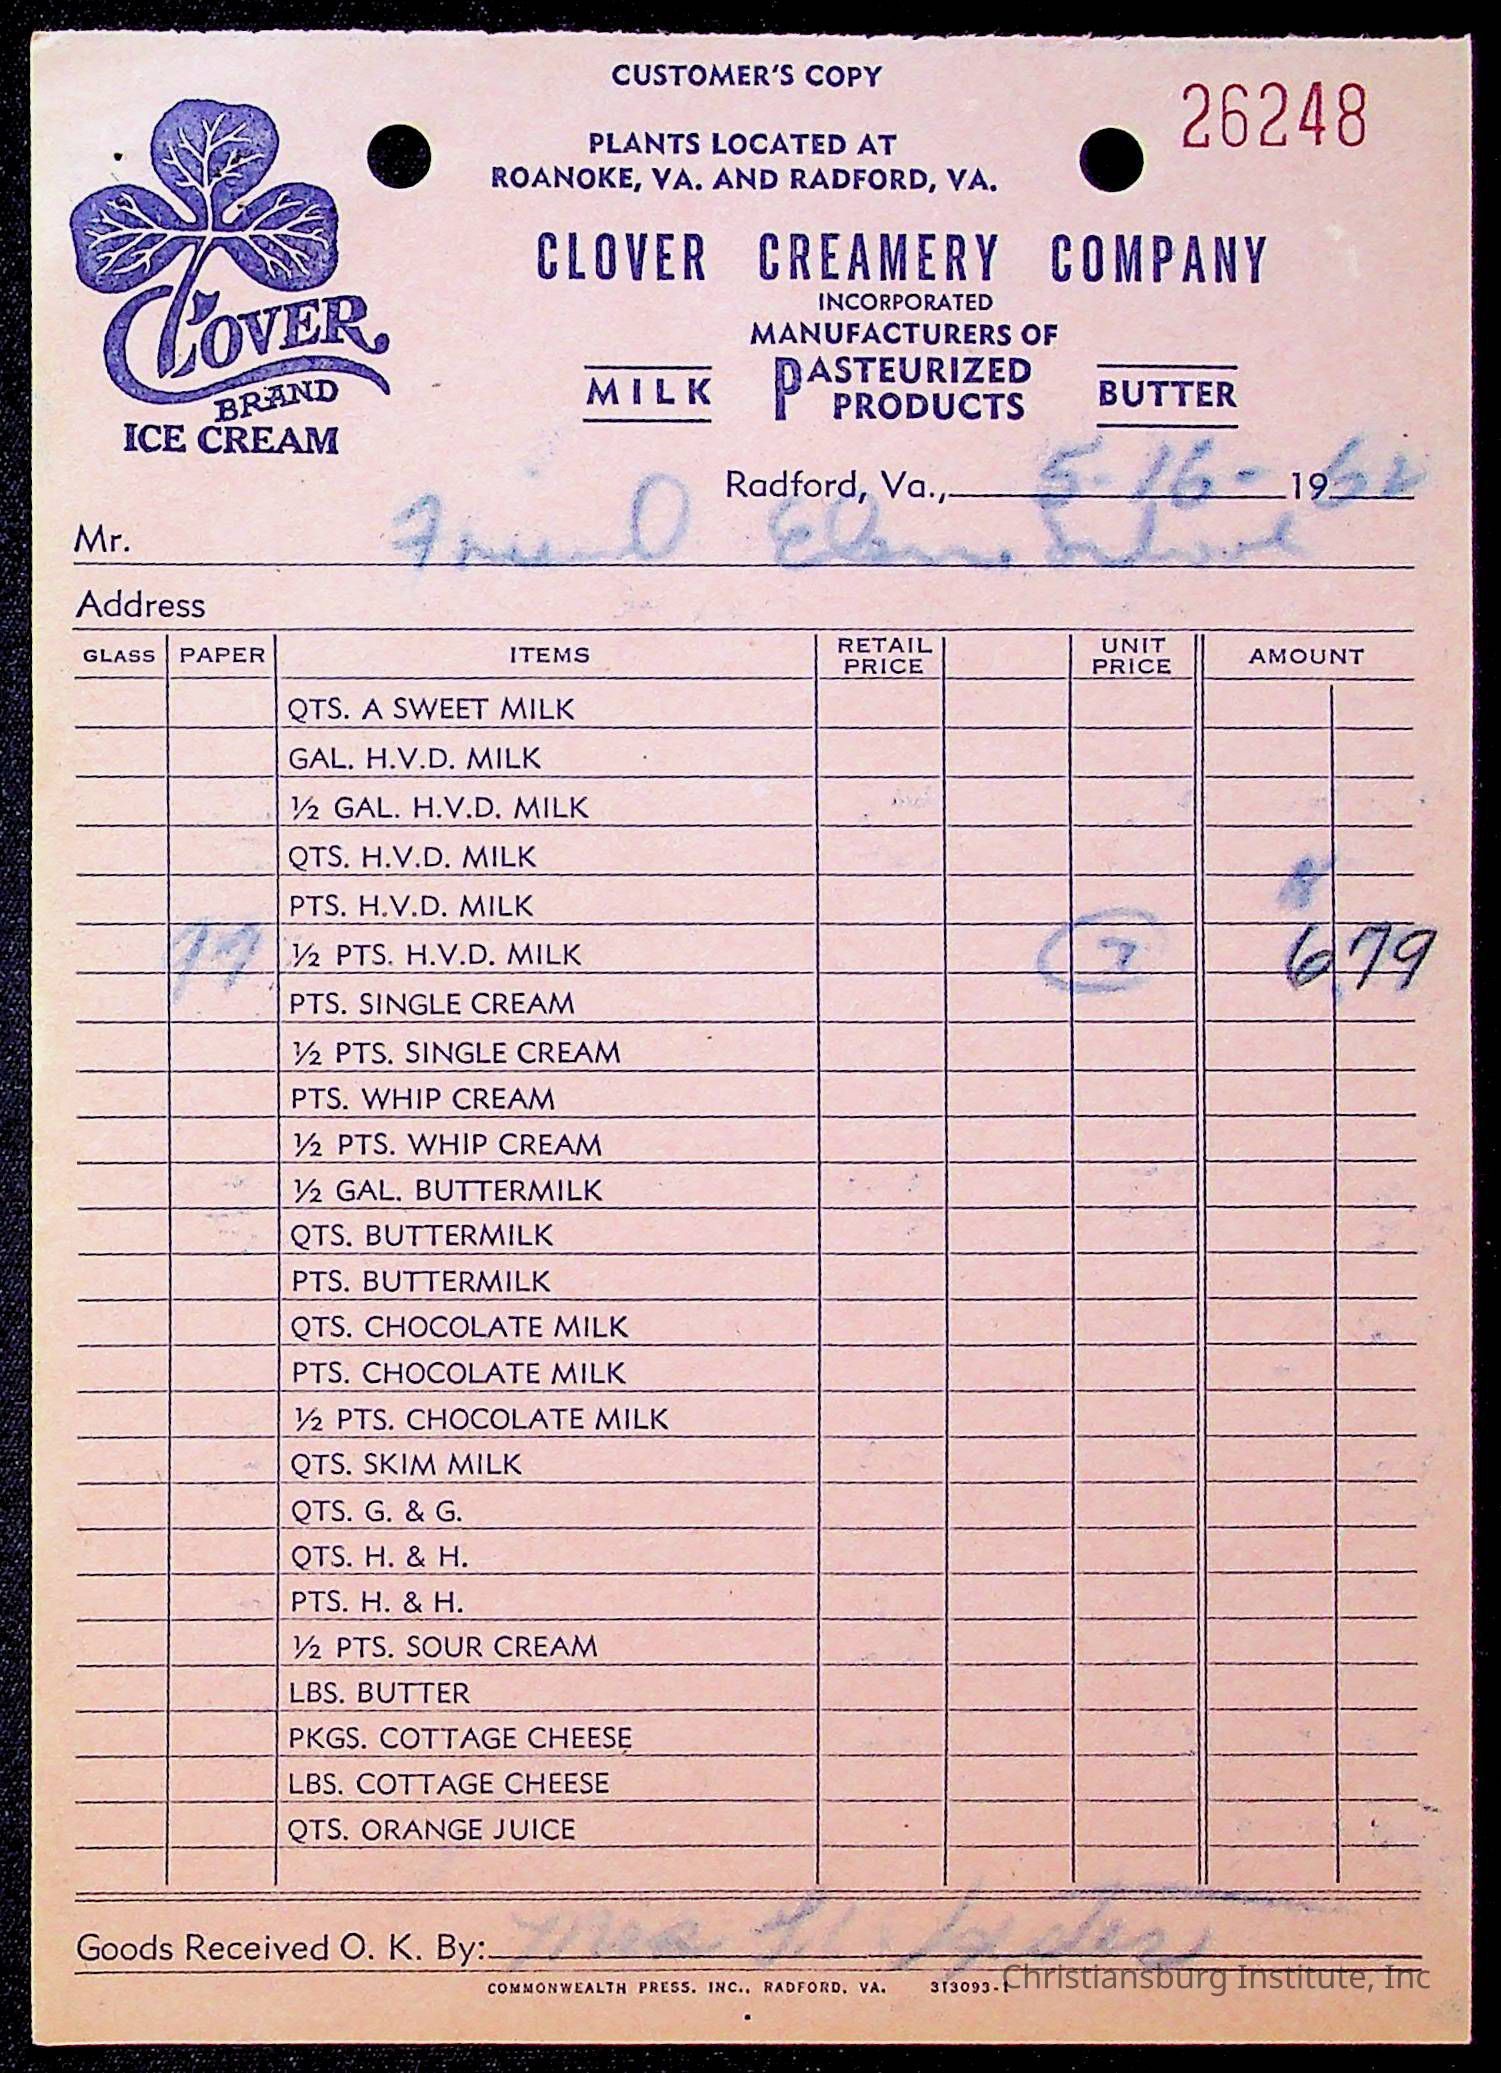 CUSTOMER'S COPY
26248
PLANTS LOCATED AT
ROANOKE, VA. AND RADFORD, VA.
CLOVER CREAMERY COMPANY
INCORPORATED
MANUFACTURERS OF
MILK PASTEURIZED PRODUCTS BUTTER
CLOVER
BRAND
ICE CREAM
Radford, Va., 5-16- 1962
Mr. Friend Elem. School
Address
GLASS PAPER ITEMS RETAIL PRICE UNIT PRICE AMOUNT
QTS. A SWEET MILK
GAL. H.V.D. MILK
½ GAL. H.V.D. MILK
QTS. H.V.D. MILK
PTS. H.V.D. MILK
½ PTS. H.V.D. MILK 7 6 79
PTS. SINGLE CREAM
½ PTS. SINGLE CREAM
PTS. WHIP CREAM
½ PTS. WHIP CREAM
½ GAL. BUTTERMILK
QTS. BUTTERMILK
PTS. BUTTERMILK
QTS. CHOCOLATE MILK
PTS. CHOCOLATE MILK
½ PTS. CHOCOLATE MILK
QTS. SKIM MILK
QTS. G. & G.
QTS. H. & H.
PTS. H. & H.
½ PTS. SOUR CREAM
LBS. BUTTER
PKGS. COTTAGE CHEESE
LBS. COTTAGE CHEESE
QTS. ORANGE JUICE
Goods Received O. K. By: Mrs
COMMONWEALTH PRESS. INC., RADFORD, VA. 313093-1
Christiansburg Institute, Inc